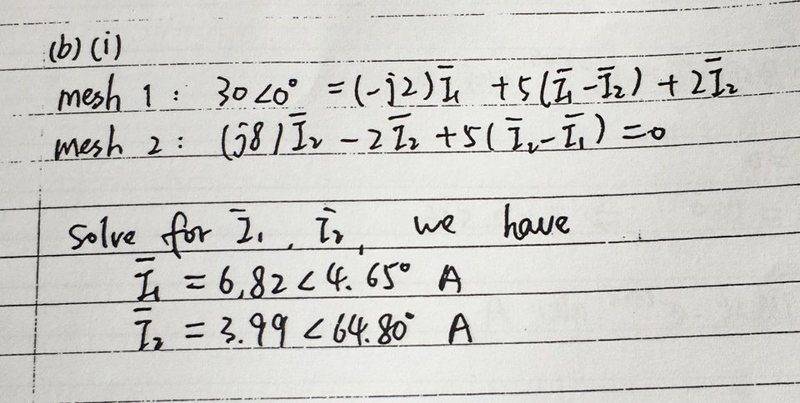 (b) (i)
mesh 1 : 30<0° = (-j2) Ī₁ + 5(Ī₁-Ī₂) + 2Ī₂
mesh 2 : (j8) Ī₂ - 2Ī₂ + 5(Ī₂-Ī₁) = 0
Solve for Ī₁, Ī₂, we have
Ī₁ = 6.82 < 4.65° A
Ī₂ = 3.99 < 64.80° A